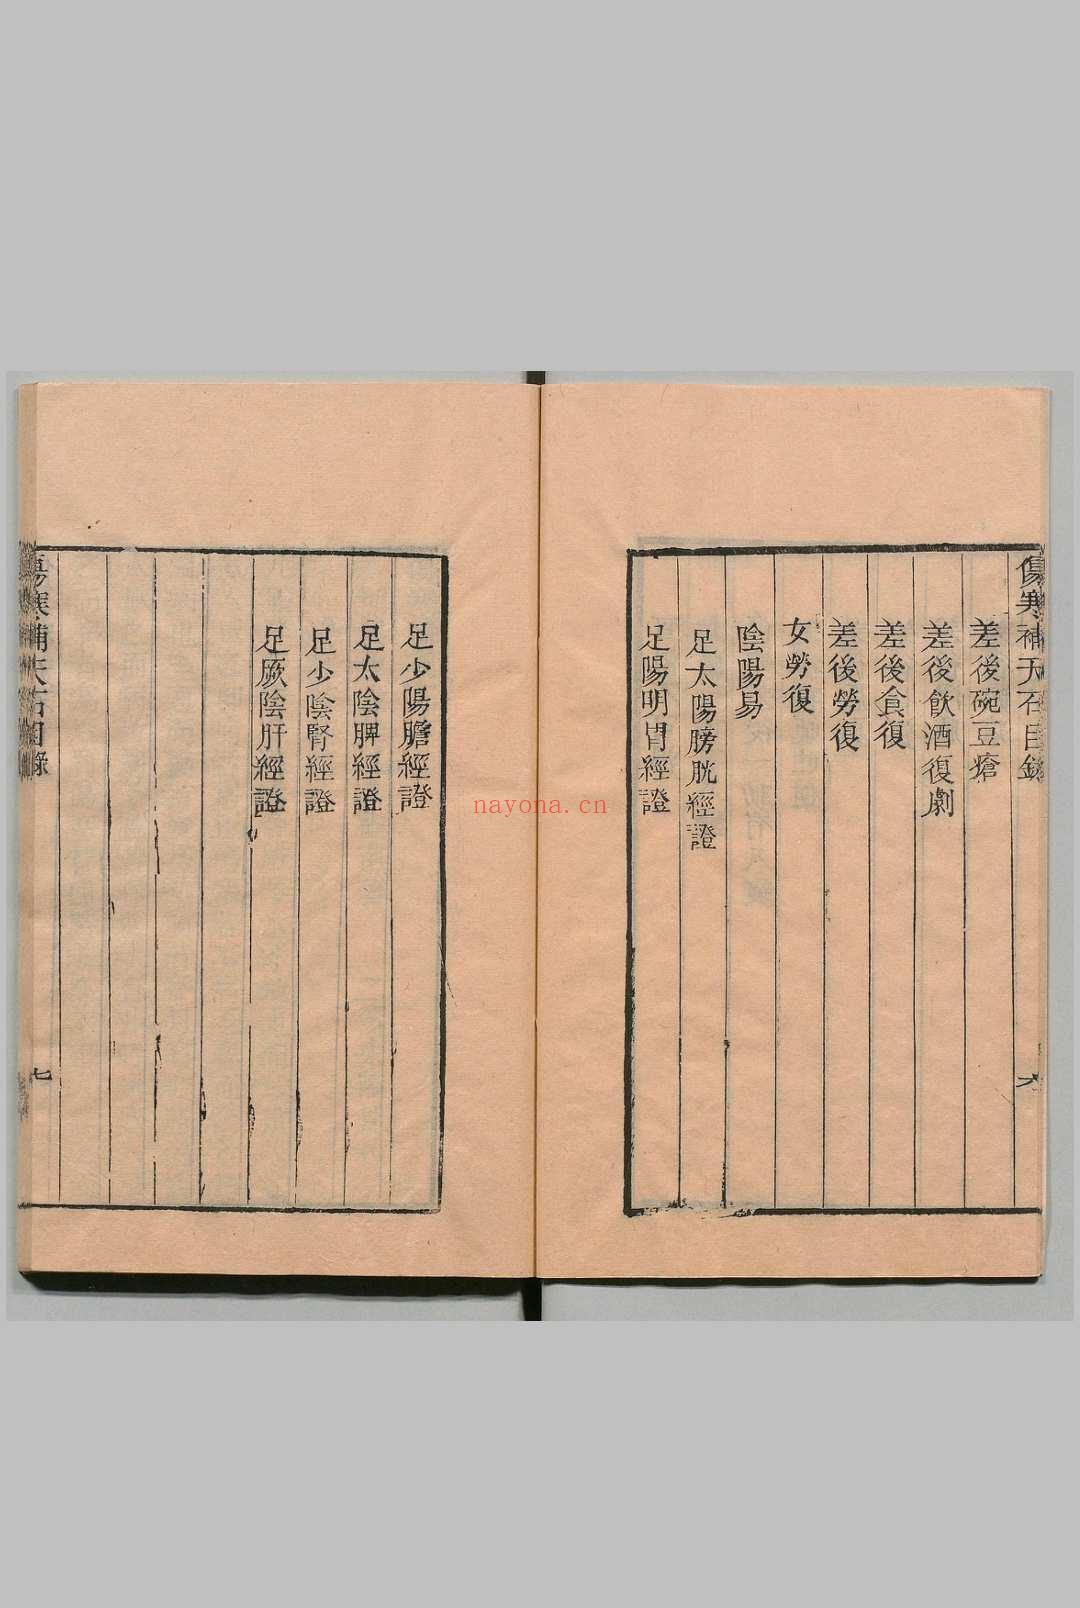 傷寒補天石目錄
六
差後碗豆瘡
差後飲酒復劇
差後食復
差後勞復
女勞復
陰陽易
足太陽膀胱經證
足陽明胃經證
足少陽膽經證
足太陰脾經證
足少陰腎經證
足厥陰肝經證
傷寒補天石目錄
七
nayona.cn